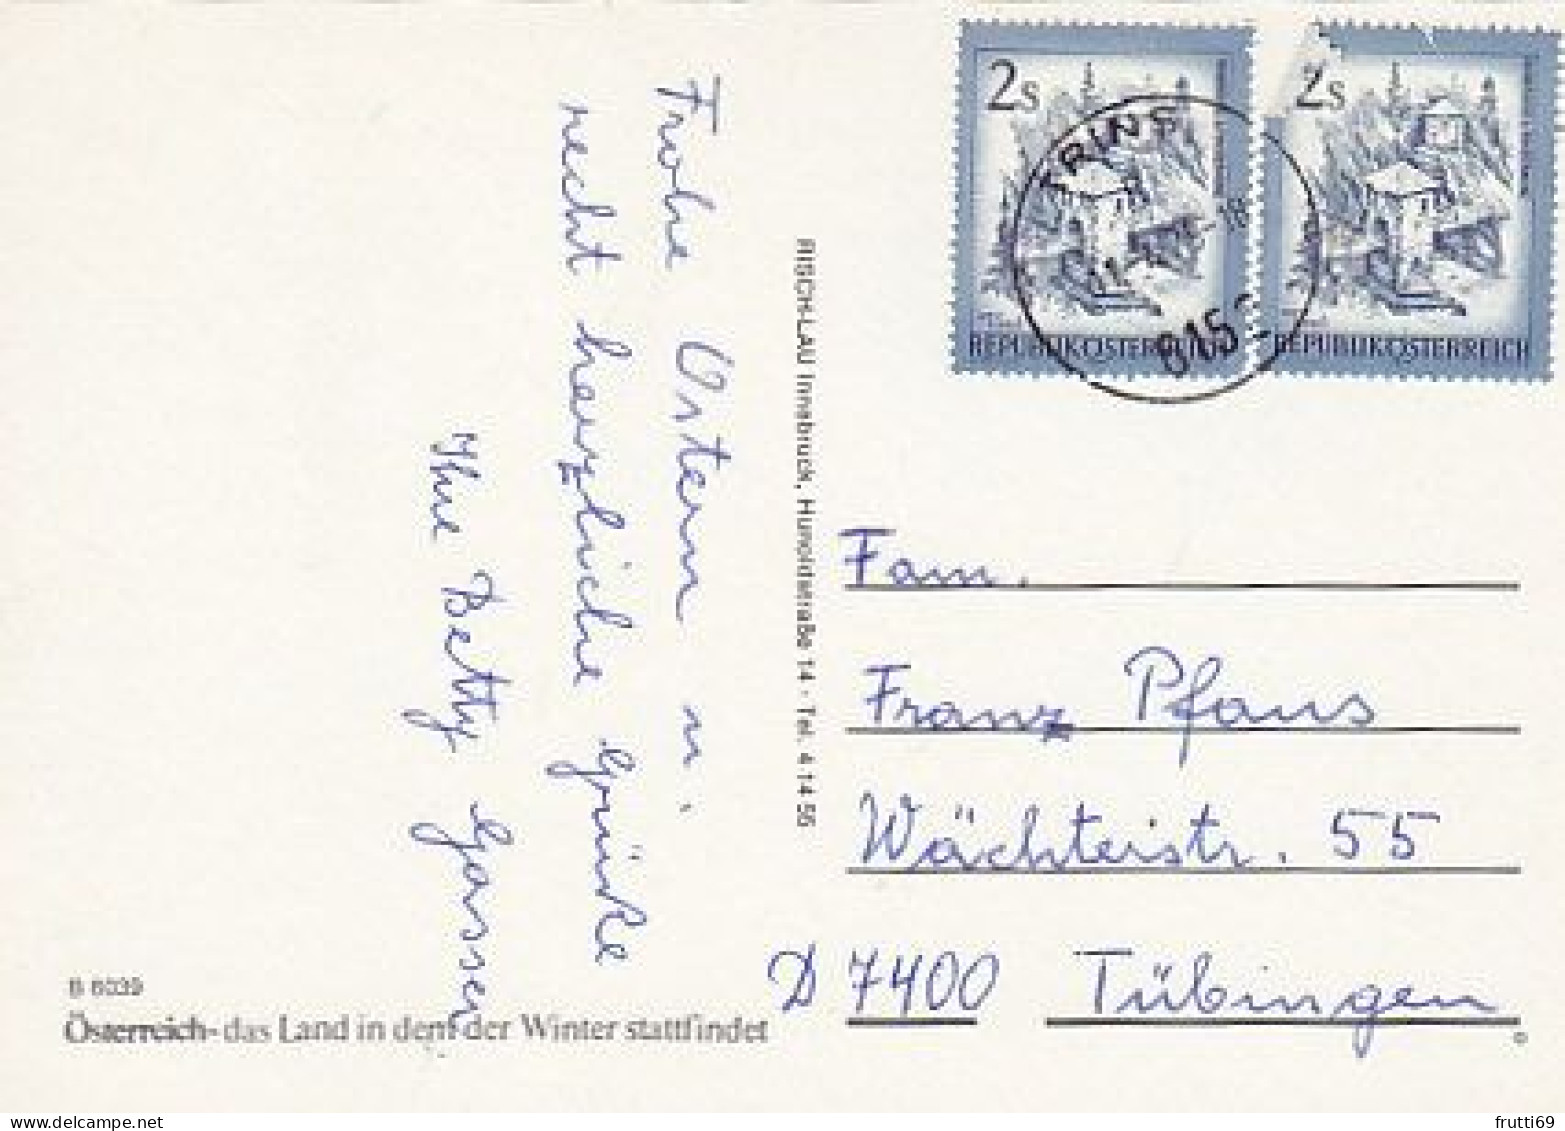 Frohe Ostern u.
recht herzliche Grüße
Ihre Betty Gasser
RISCH-LAU Innsbruck, Hunoldstraße 14 - Tel. 4 14 55
2s
2s
REPUBLIK ÖSTERREICH
REPUBLIK ÖSTERREICH
TRINS
Fam.
Franz Pfaus
Wächterstr. 55
D 7400 Tübingen
B 6039
Österreich - das Land in dem der Winter stattfindet
frutti69